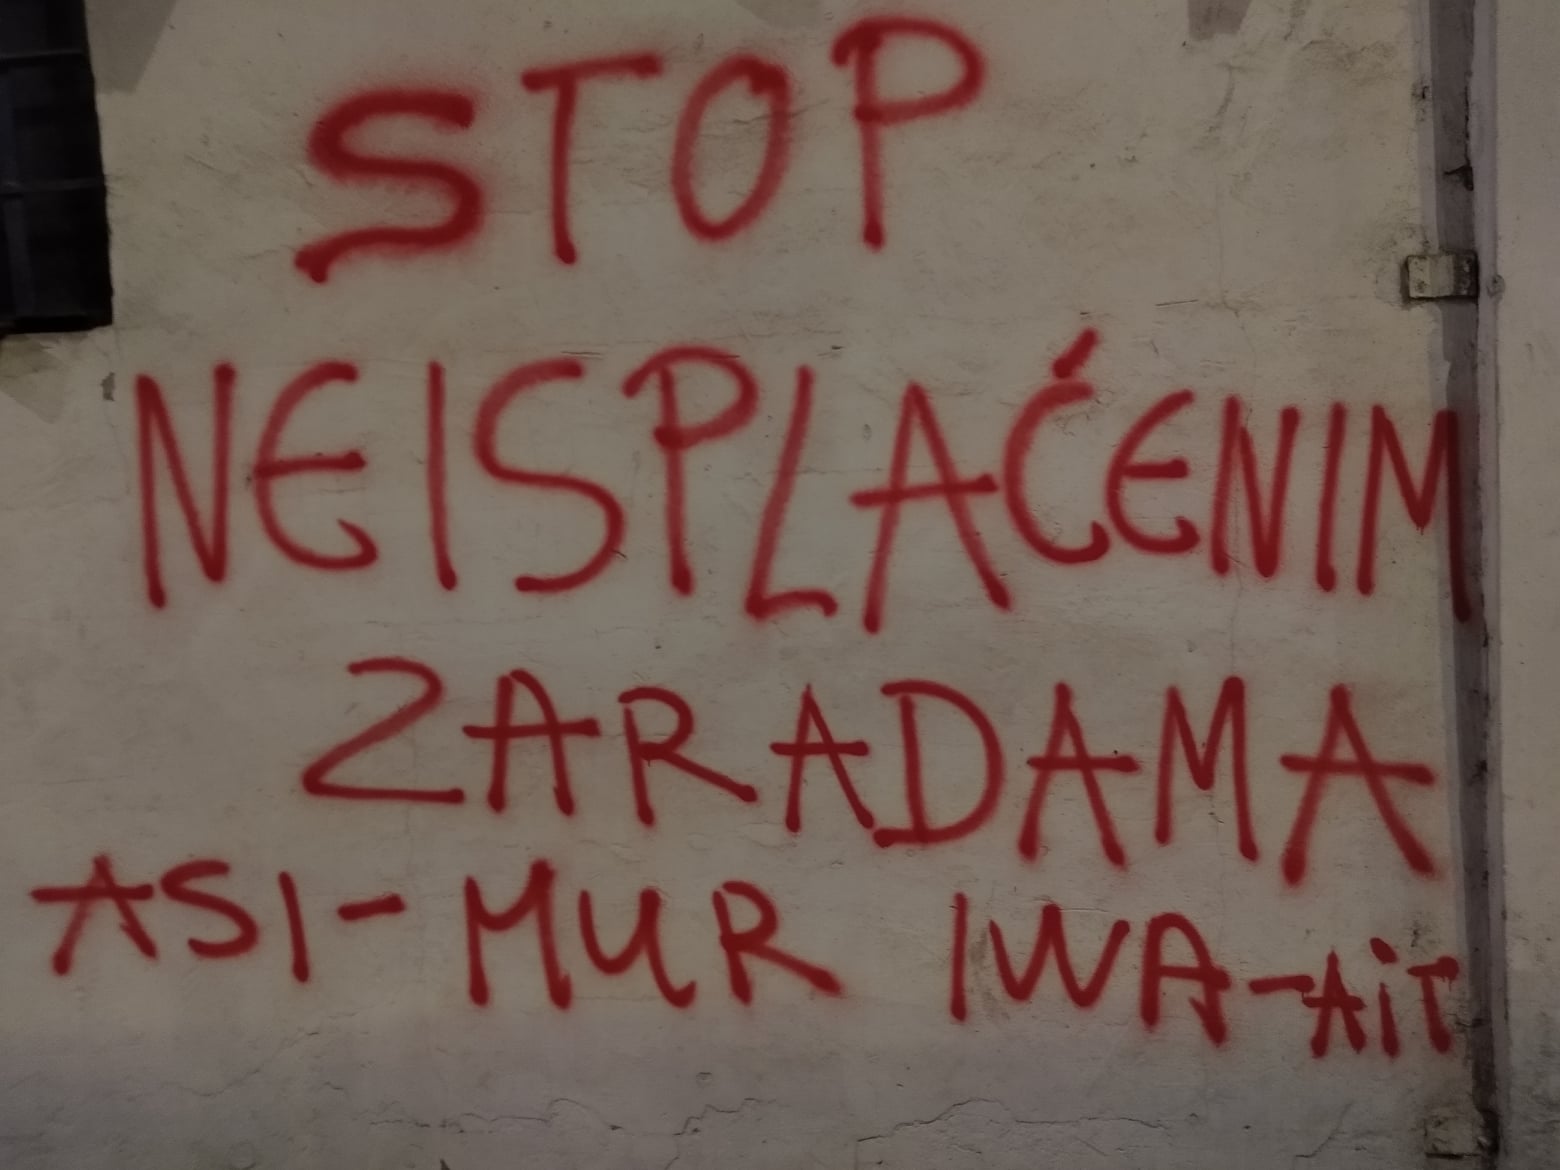 STOP
NEISPLAĆENIM
ZARADAMA
ASI-MUR IWA-AiT